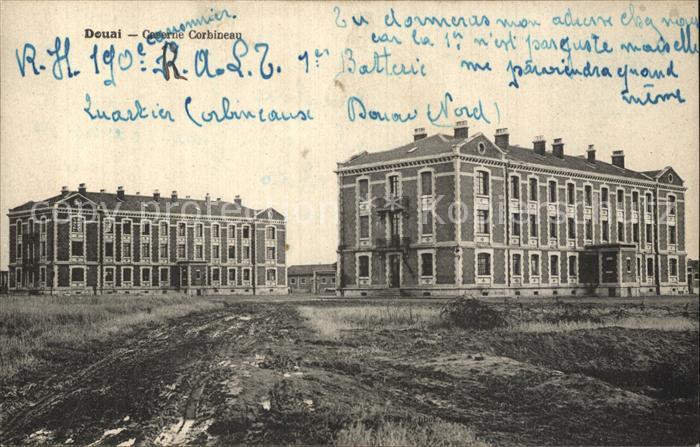 Douai — Caserne Corbineau
canonnier
R.H. 190e R.A.L.T. 1er Batterie
Quartier Corbineaux Douai (Nord)
Tu donneras mon adresse chez
car la 1re n'est pas juste mais elle
me parviendra quand
même